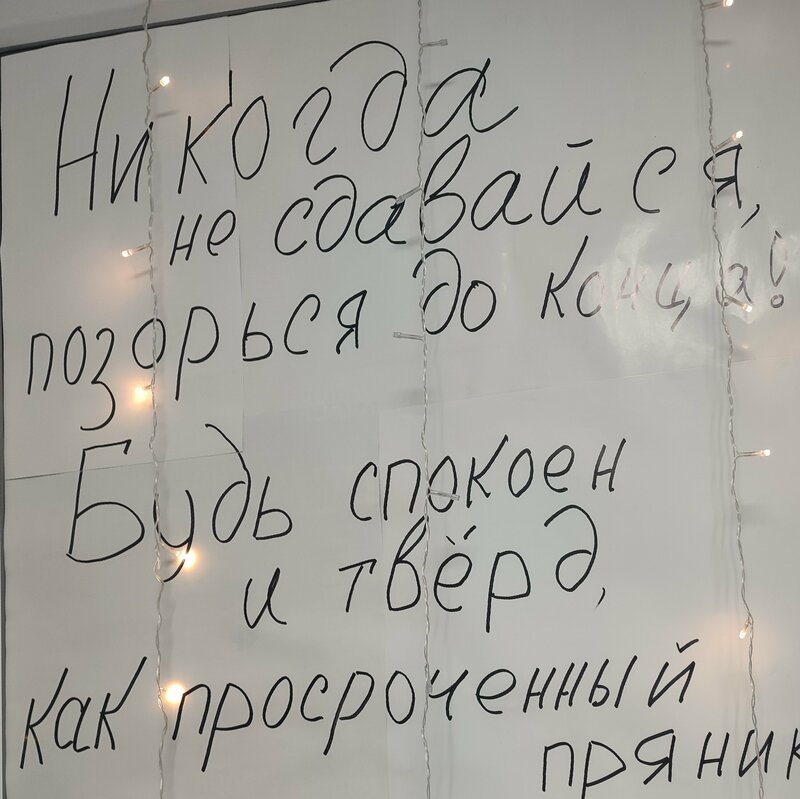 Никогда
не сдавайся,
позорься до конца!
Будь спокоен
и твёрд,
как просроченный
пряник